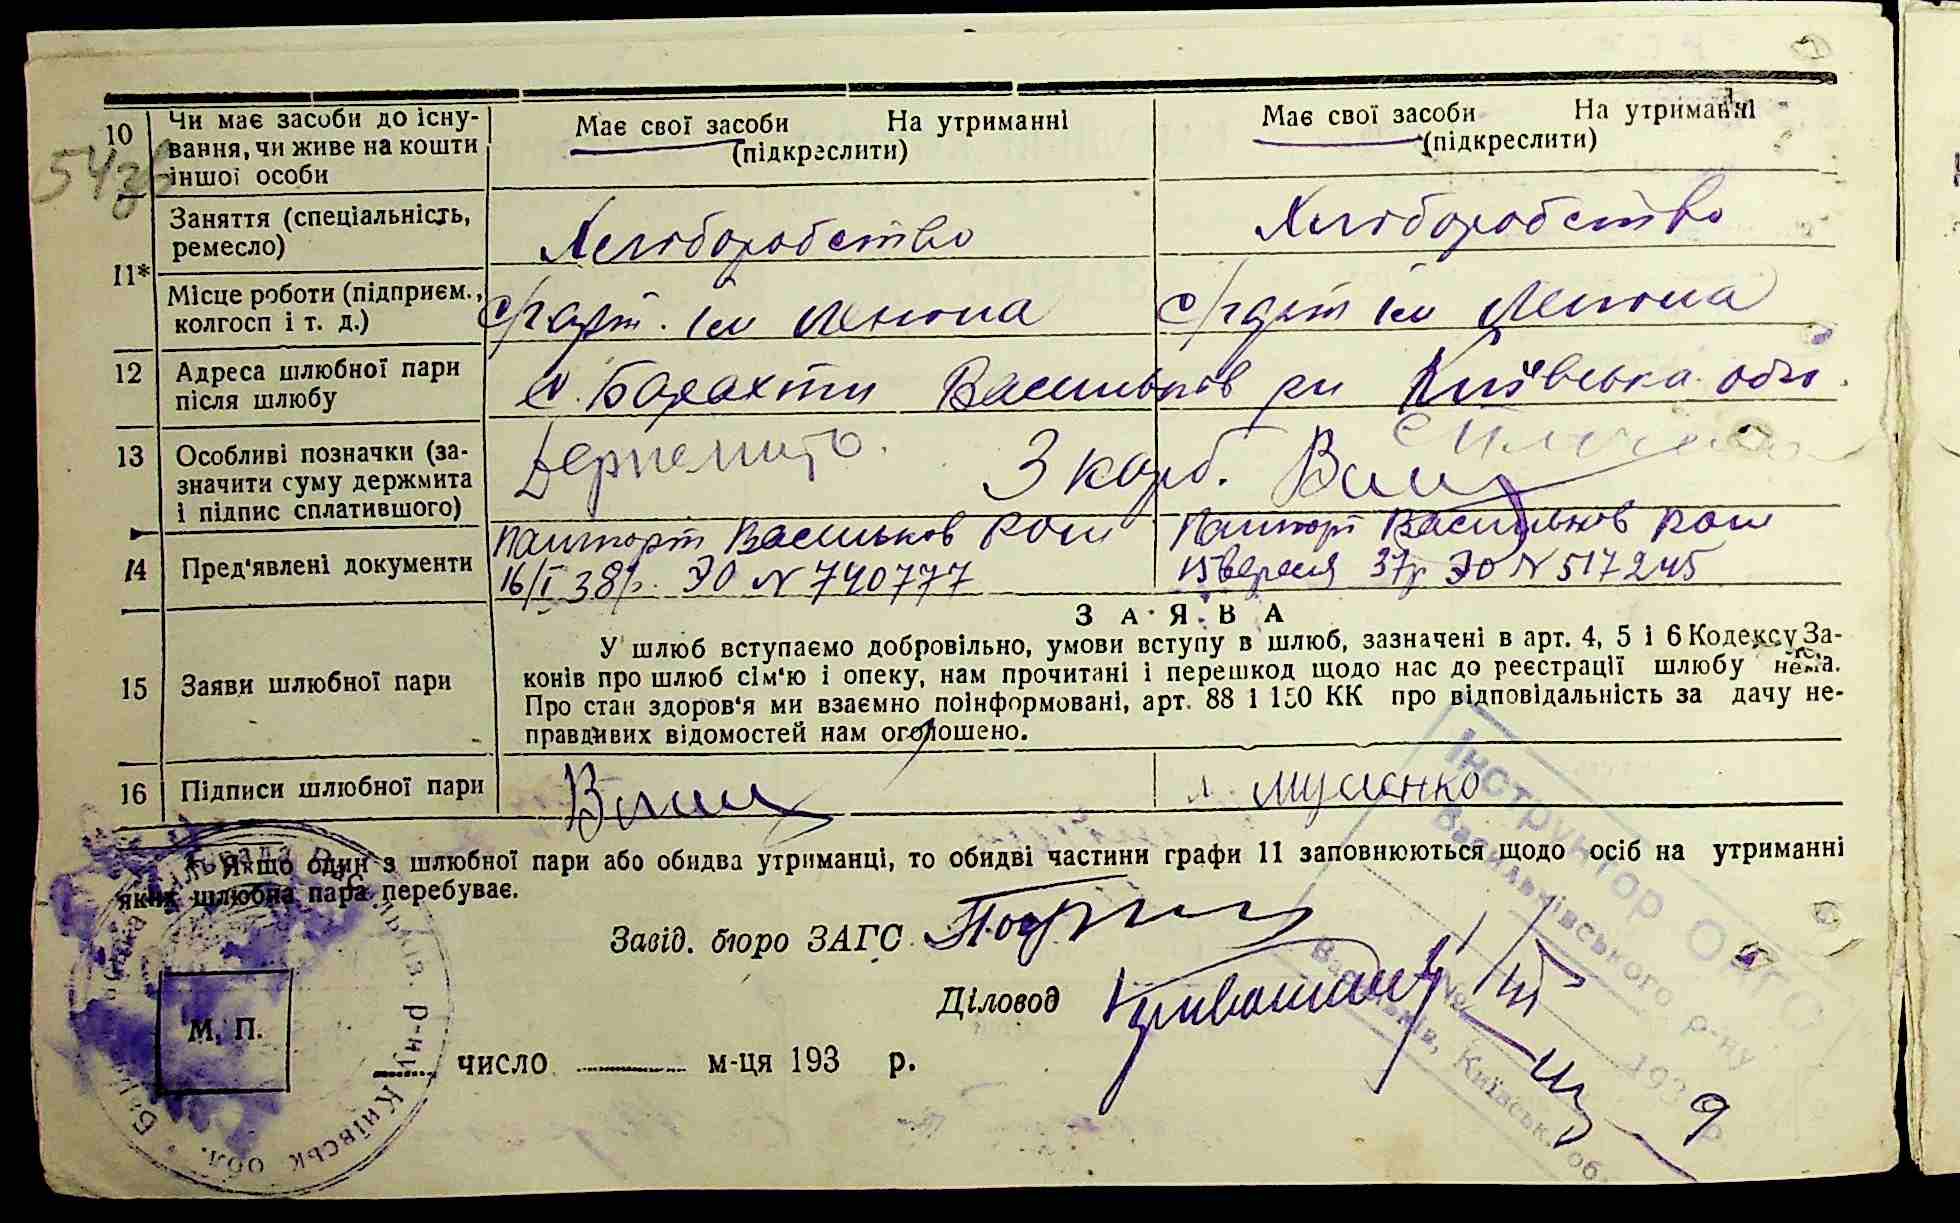 10 Чи має засоби до існування, чи живе на кошти іншої особи
Має свої засоби На утриманні
(підкреслити)
Має свої засоби На утриманні
(підкреслити)
54зв
11* Заняття (спеціальність, ремесло)
Хліборобство
Хліборобство
Місце роботи (підприєм., колгосп і т. д.)
с/г арт. ім Леніна
с/г арт ім Леніна
12 Адреса шлюбної пари після шлюбу
с. Барахти Васильків рн Київська обл.
13 Особливі позначки (зазначити суму держмита і підпис сплатившого)
Держмито. 3 карб.
14 Пред'явлені документи
Пашпорт Васильков РОМ
16/I 38 р. ЭО N 740777
Пашпорт Васильков РОМ
15 вересня 37р ЭО N 517245
15 Заяви шлюбної пари
ЗАЯВА
У шлюб вступаємо добровільно, умови вступу в шлюб, зазначені в арт. 4, 5 і 6 Кодексу За-
конів про шлюб сім'ю і опеку, нам прочитані і перешкод щодо нас до реєстрації шлюбу нема.
Про стан здоров'я ми взаємно поінформовані, арт. 88 і 150 КК про відповідальність за дачу не-
правдивих відомостей нам оголошено.
16 Підписи шлюбної пари
Мусієнко
Якщо один з шлюбної пари або обидва утриманці, то обидві частини графи 11 заповнюються щодо осіб на утриманні
яких шлюбна пара перебуває.
Завід. бюро ЗАГС
Діловод
М. П.
число м-ця 193 р.
Васильків. р-ну Київськ обл.
Інструктор ОАГС
Васильківського р-ну
№ 1939 р.
Васильків, Київськ. об.